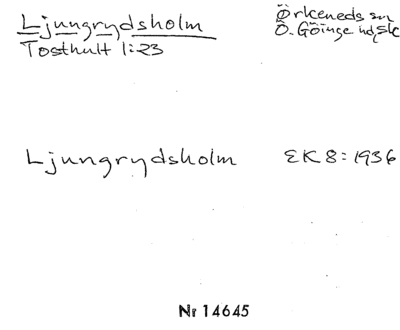 Ljungrydsholm
Tosthult 1:23
Örkeneds sn
Ö. Göinge hd, Sk
Ljungrydsholm
EK 8: 1936
Nr 14645